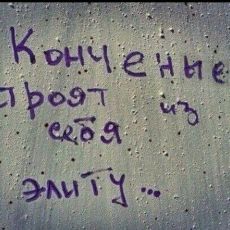 Конченые
троят из
себя
элиту...